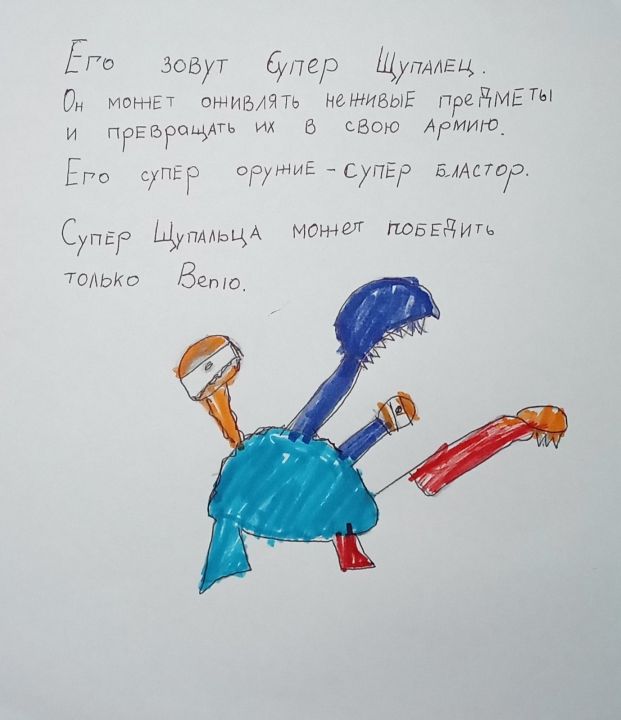 Его зовут Супер Щупалец.
Он может оживлять неживые предметы
и превращать их в свою армию.
Его супер оружие - супер бластор.
Супер Щупальца может победить
только Вепю.